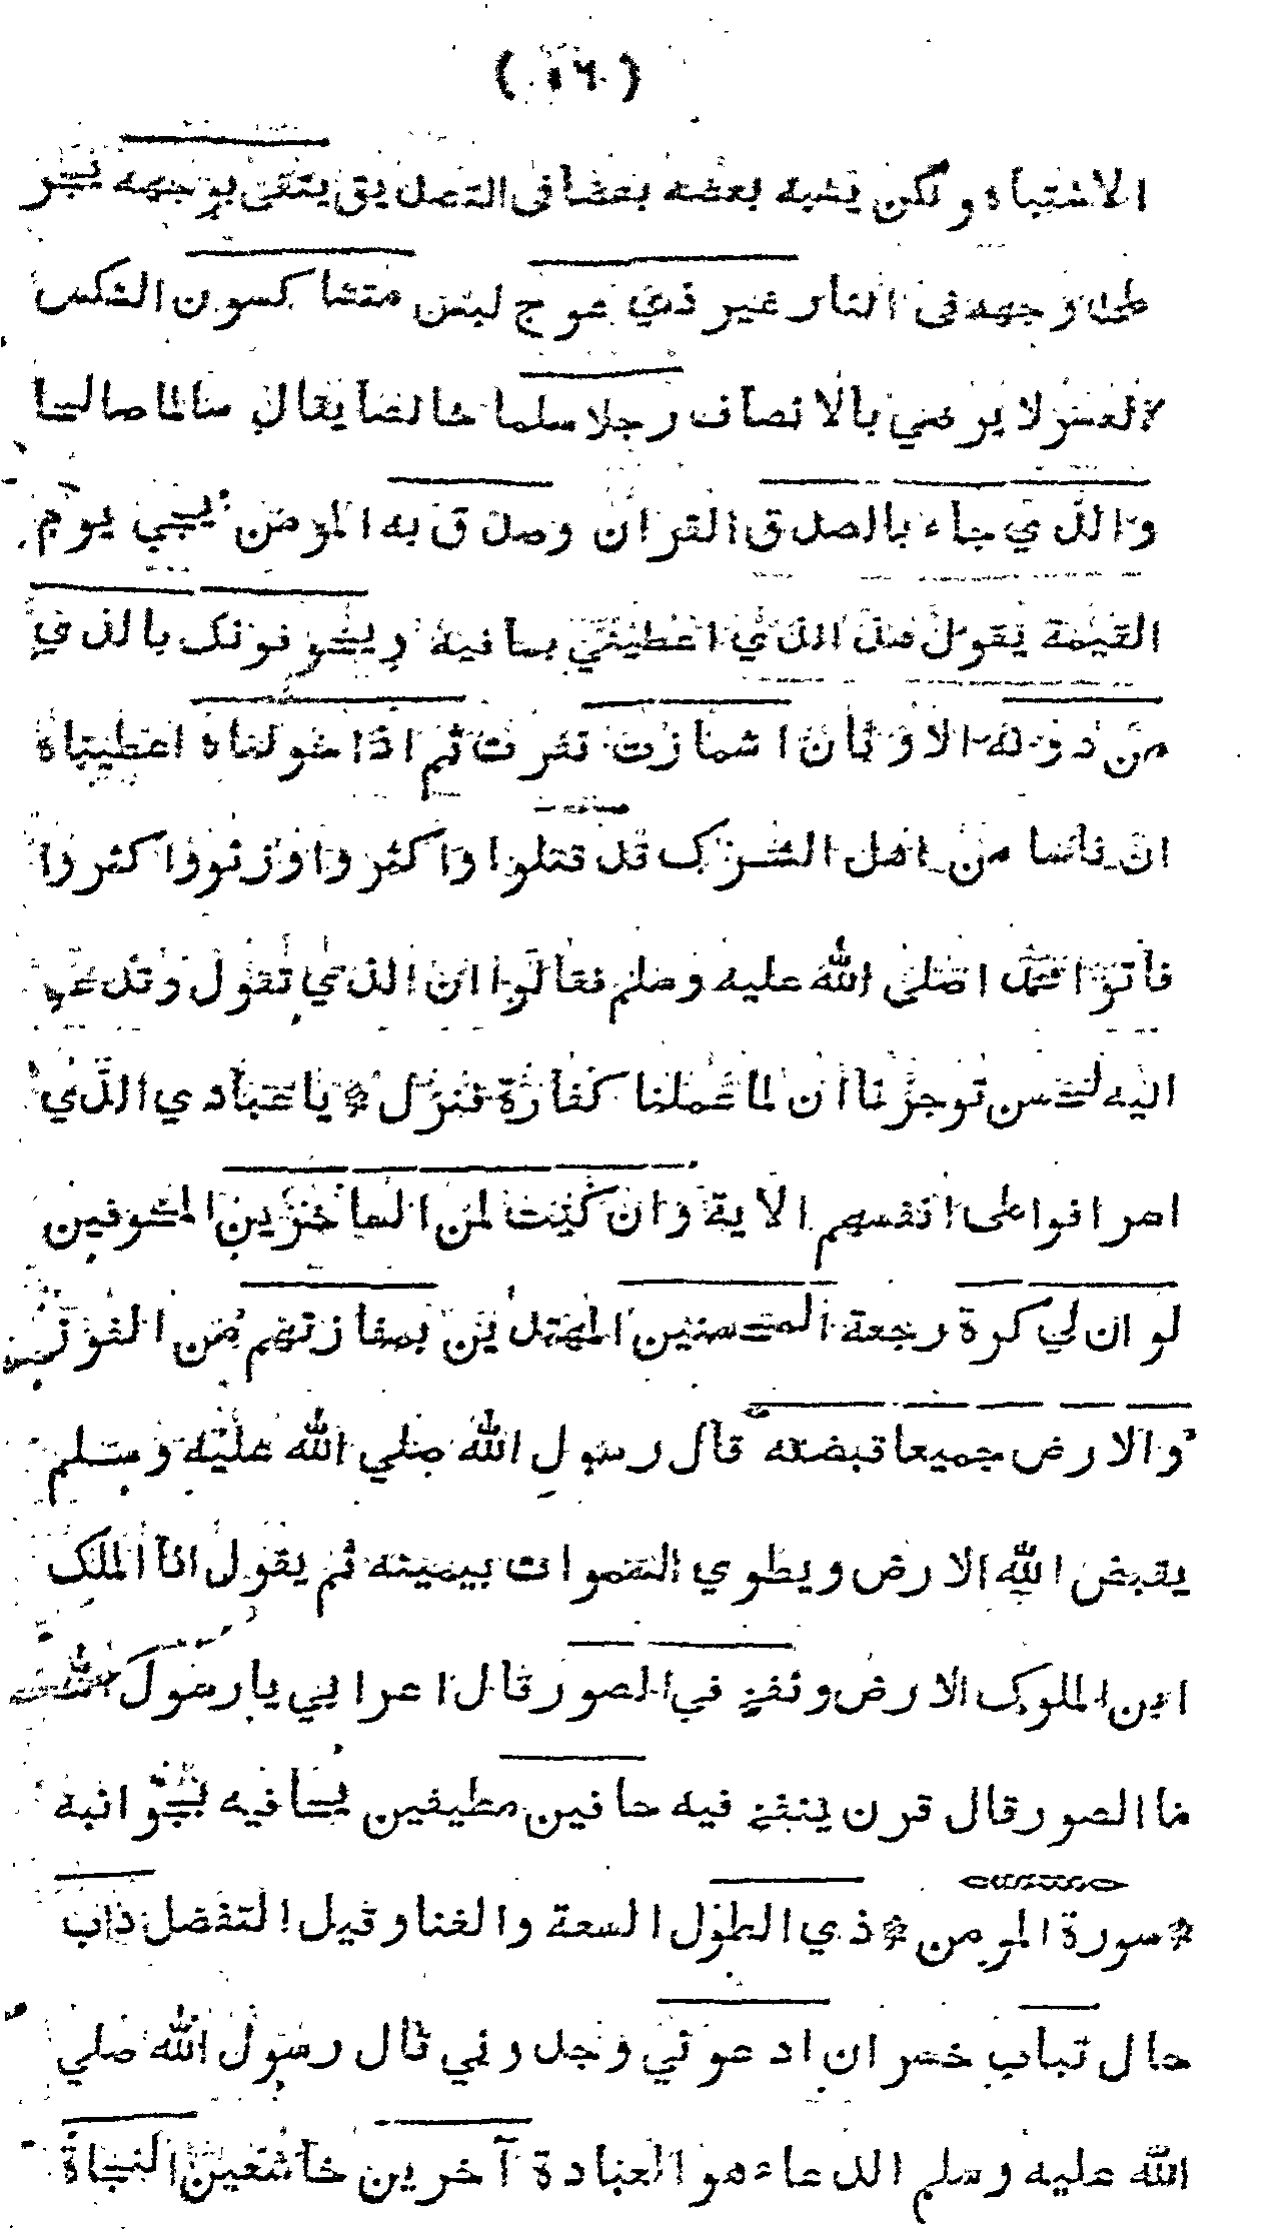 ( ٥٦ )
الاشتباه ولكن يشبه بعضه بعضا فى التصديق يتقى بوجهه يجر
على وجهه فى النار غير ذي عوج لبس متشاكسون الشكس
العسر لا يرضي بالانصاف رجلا سلما خالصا يقال سالما صالحا
والذي جاء بالصدق القران وصدق به المومن يجي يوم
القيمة يقول هذا الذي اعطيتني بما فيه ويخوفونك بالذين
من دونه الاوثان اشمازت نفرت ثم اذا خولناه اعطيناه
ان ناسا من اهل الشرك قد قتلوا واكثروا وزنووا كثروا
فاتوا محمدا صلى الله عليه وسلم فقالوا ان الذي تقول وتدعو
اليه لحسن توجزنا ان لما عملنا كفارة فنزل * يا عبادي الذي
اسرافوا على انفسهم الآية وان كنت لمن الساخرين المخوفين
لو ان لي كرة رجعة المحسنين المهتدين بمفازتهم من الفوز
والارض جميعا قبضته قال رسول الله صلي الله عليه وسلم
يقبض الله الارض ويطوي السموات بيمينه ثم يقول انا الملك
اين الملوك الارض ونفخ في الصور قال اعرابي يا رسول الله
ما الصور قال قرن ينفخ فيه حافين مطيفين بحافيه بجوانبه
* سورة المومن * ذي الطول السعة والغنا وقيل التفضل داب
حال تباب خسران ادعوني وحدوني قال رسول الله صلي
الله عليه وسلم الدعاء هو العبادة آخرين خاشعين النجاة